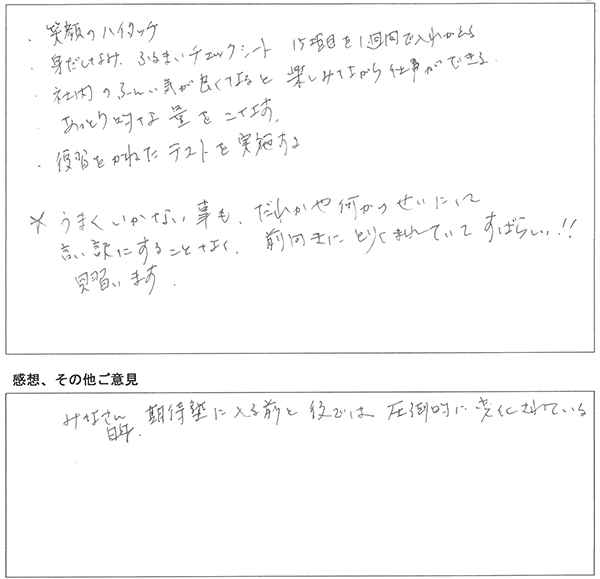 ・笑顔のハイタッチ
・身だしなみ、ふるまいチェックシート 15項目を1週間で入れかえる
・社内のふんい気が良くなると 楽しみながら仕事ができる。
あっとう的な量をこなす。
・復習をかねたテストを実施する
※うまくいかない事も、だれかや何かのせいにして
言い訳にすることなく、前向きにとりくまれていてすばらしい!!
見習います。
感想、その他ご意見
みなさん 期待塾に入る前と後では 圧倒的に変化されている
自身、